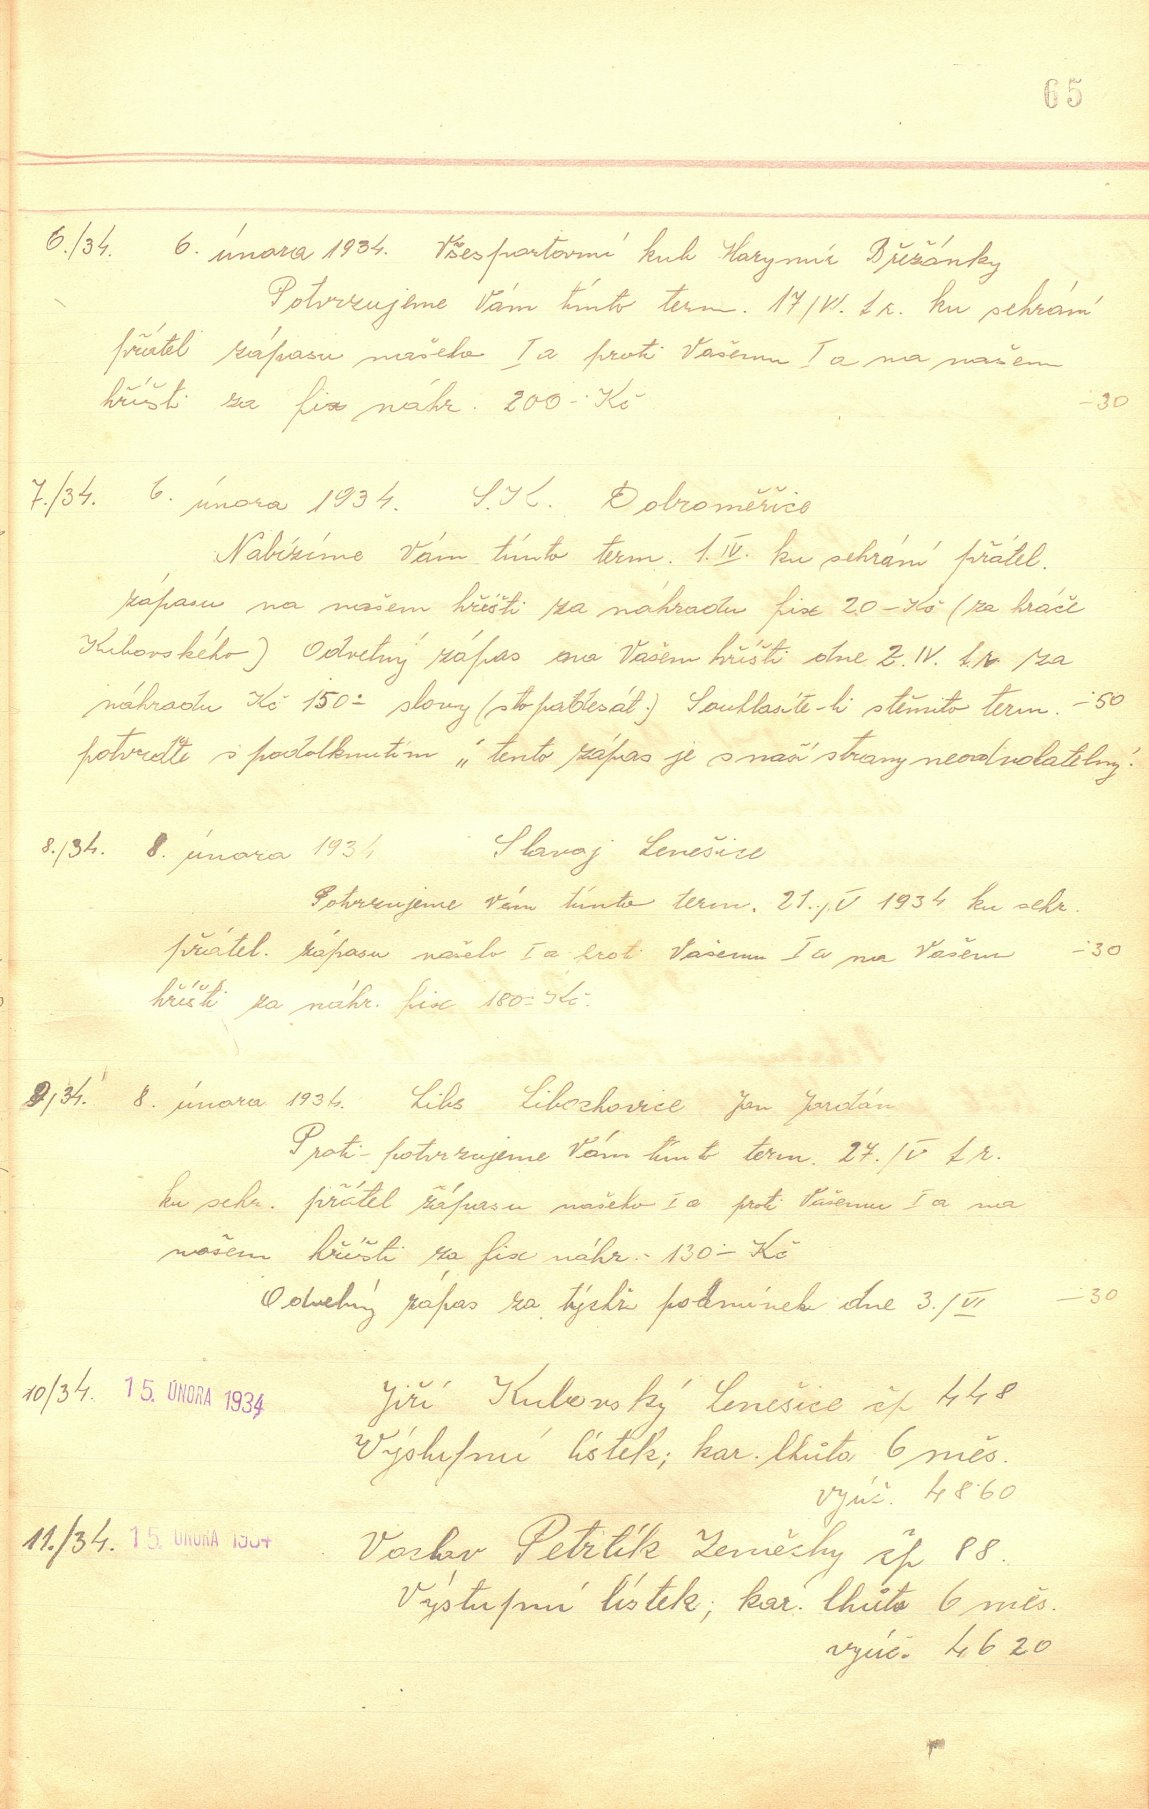 65
6./34. 6. února 1934. Všesportovní kub Harymír Břežánky
Potvrzujeme Vám tímto term. 17/VI. t r. ku sehrání
přátel zápasu našeho Ia proti Vašemu Ia na našem
hřišti za fix náhr. 200-Kč -30
7./34. 6. února 1934. S.K. Dobroměřice
Nabízíme Vám tímto term. 1.IV. ku sehrání přátel.
zápasu na našem hřišti za náhradu fix 20-Kč (za hráče
Kubovského) Odvetný zápas na Vašem hřišti dne 2.IV. t.r. za
náhradu Kč 150- slovy (sto padesát.) Souhlasíte-li stěmito term. -50
potvrďte s podotknutím „ tento zápas je s naší strany neodvolatelný."
8./34. 8. února 1934 Slavoj Lenešice
Potvrzujeme Vám tímto term. 21./V 1934 ku sehr.
přátel. zápasu našeho Ia proti Vašemu Ia na Vašem -30
hřišti za náhr. fix 180-Kč.
9/34. 8. února 1934. Libs Libochovice Jan Jordán
Proti-potvrzujeme Vám tímto term. 27./V t r.
ku sehr. přátel zápasu našeho Ia proti Vašemu Ia na
našem hřišti za fix náhr.- 130- Kč
Odvetný zápas za týchž podmínek dne 3./VI -30
10/34. 15. ÚNORA 1934 Jiří Kubovský Lenešice čp 448
Výstupní lístek; kar. lhůta 6 měs.
vyúč. 4860
11./34. 15. ÚNORA 1934 Vaclav Petrlík Zeměchy čp 88.
Výstupní lístek; kar. lhůta 6 měs.
vyúč. 4620